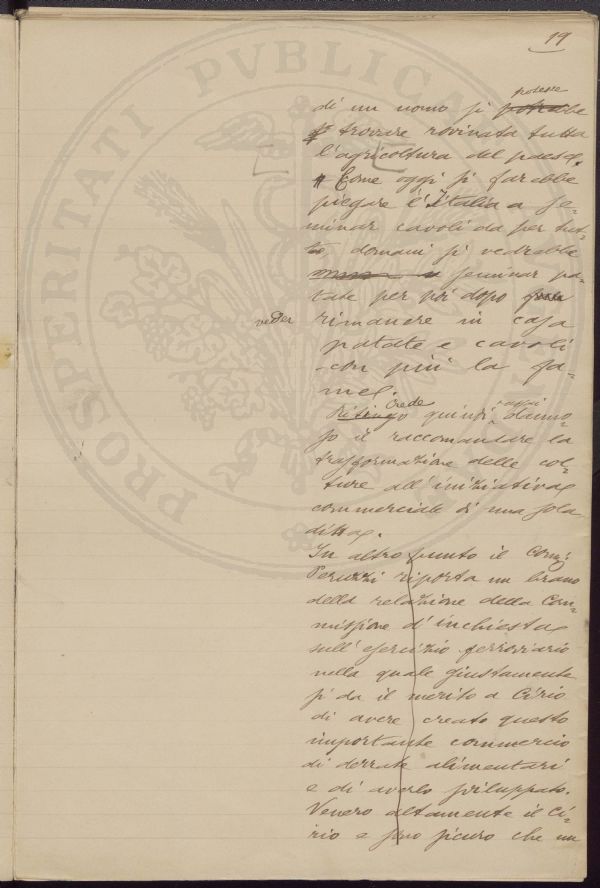 19
di un uomo si potesse
trovare rovinata tutta
l'agricoltura del paese.
Come oggi si farebbe
piegare l'Italia a se-
minar cavoli da per tut-
to domani si vedrebbe
seminar pa-
tate per poi dopo
veder rimanere in casa
patate e cavoli
con più la fa-
me.
Ritengo Crede quindi assai danno-
so il raccomandare la
trasformazione delle col-
ture all'iniziativa
commerciale di una sola
ditta.
In altro punto il Comm:
Peruzzi riporta un brano
della relazione della Com-
missione d'inchiesta
sull'esercizio ferroviario
nella quale giustamente
si da il merito a Cirio
di avere creato questo
importante commercio
di derrate alimentari
e di averlo sviluppato.
Venero altamente il Ci-
rio e sono sicuro che un
PROSPERITATI PVBLICAE